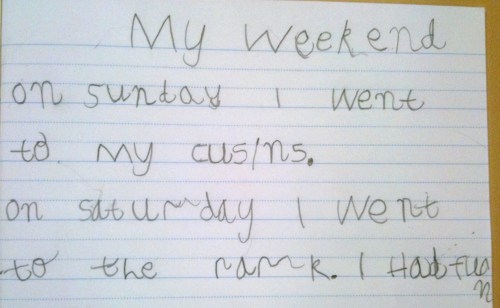 My weekend
on sunday I went
to. my cusins.
on saturday I went
to the ramk. I Had fun
n